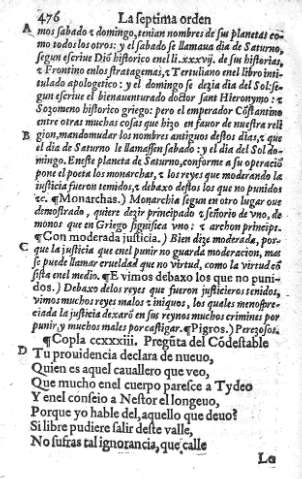 476 La septima orden
A mos sabado & domingo, tenian nombres de sus planetas co-
mo todos los otros: y el sabado se llamaua dia de Saturno,
segun escriue Diõ historico enel li.xxxvij. de sus historias,
& Frontino enlos stratagemas, & Tertuliano enel libro inti-
tulado apologetico: y el domingo se dezia dia del Sol: se-
gun escriue el bienauenturado doctor sant Hieronymo: &
Sozomeno historico griego: pero el emperador Cõstantino
entre otras muchas cosas que hizo en fauor de nuestra reli
B gion, mando mudar los nombres antiguos destos dias, & que
el dia de Saturno le llamassen sabado: y el dia del Sol do-
mingo. En este planeta de Saturno, conforme a su operaciõ
pone el poeta los monarchas, & los reyes que moderando la
justicia fueron temidos, & debaxo destos los que no punidos
&c. ¶Monarchas.) Monarchia segun en otro lugar oue
demostrado, quiere dezir principado & señorio de vno, de
monos que en Griego significa vno: & archon principe.
¶Con moderada justicia.) Bien dize moderada, por-
C que la justicia que enel punir no guarda moderacion, mas
se puede llamar crueldad que no virtud, como la virtud cõ
sista enel medio. ¶E vimos debaxo los que no puni-
dos.) Debaxo delos reyes que fueron justicieros tenidos,
vimos muchos reyes malos & iniquos, los quales menospre-
ciada la justicia dexarõ en sus reynos muchos crimines por
punir, y muchos males por castigar. ¶Pigros.) Perezosos.
¶Copla ccxxxiii. Pregũta del Cõdestable
D Tu prouidencia declara de nueuo,
Quien es aquel cauallero que veo,
Que mucho enel cuerpo paresce a Tydeo
Y enel consejo a Nestor el longeuo,
Porque yo hable del, aquello que deuo?
Si libre pudiere salir deste valle,
No sufras tal ignorancia, que calle
Lo